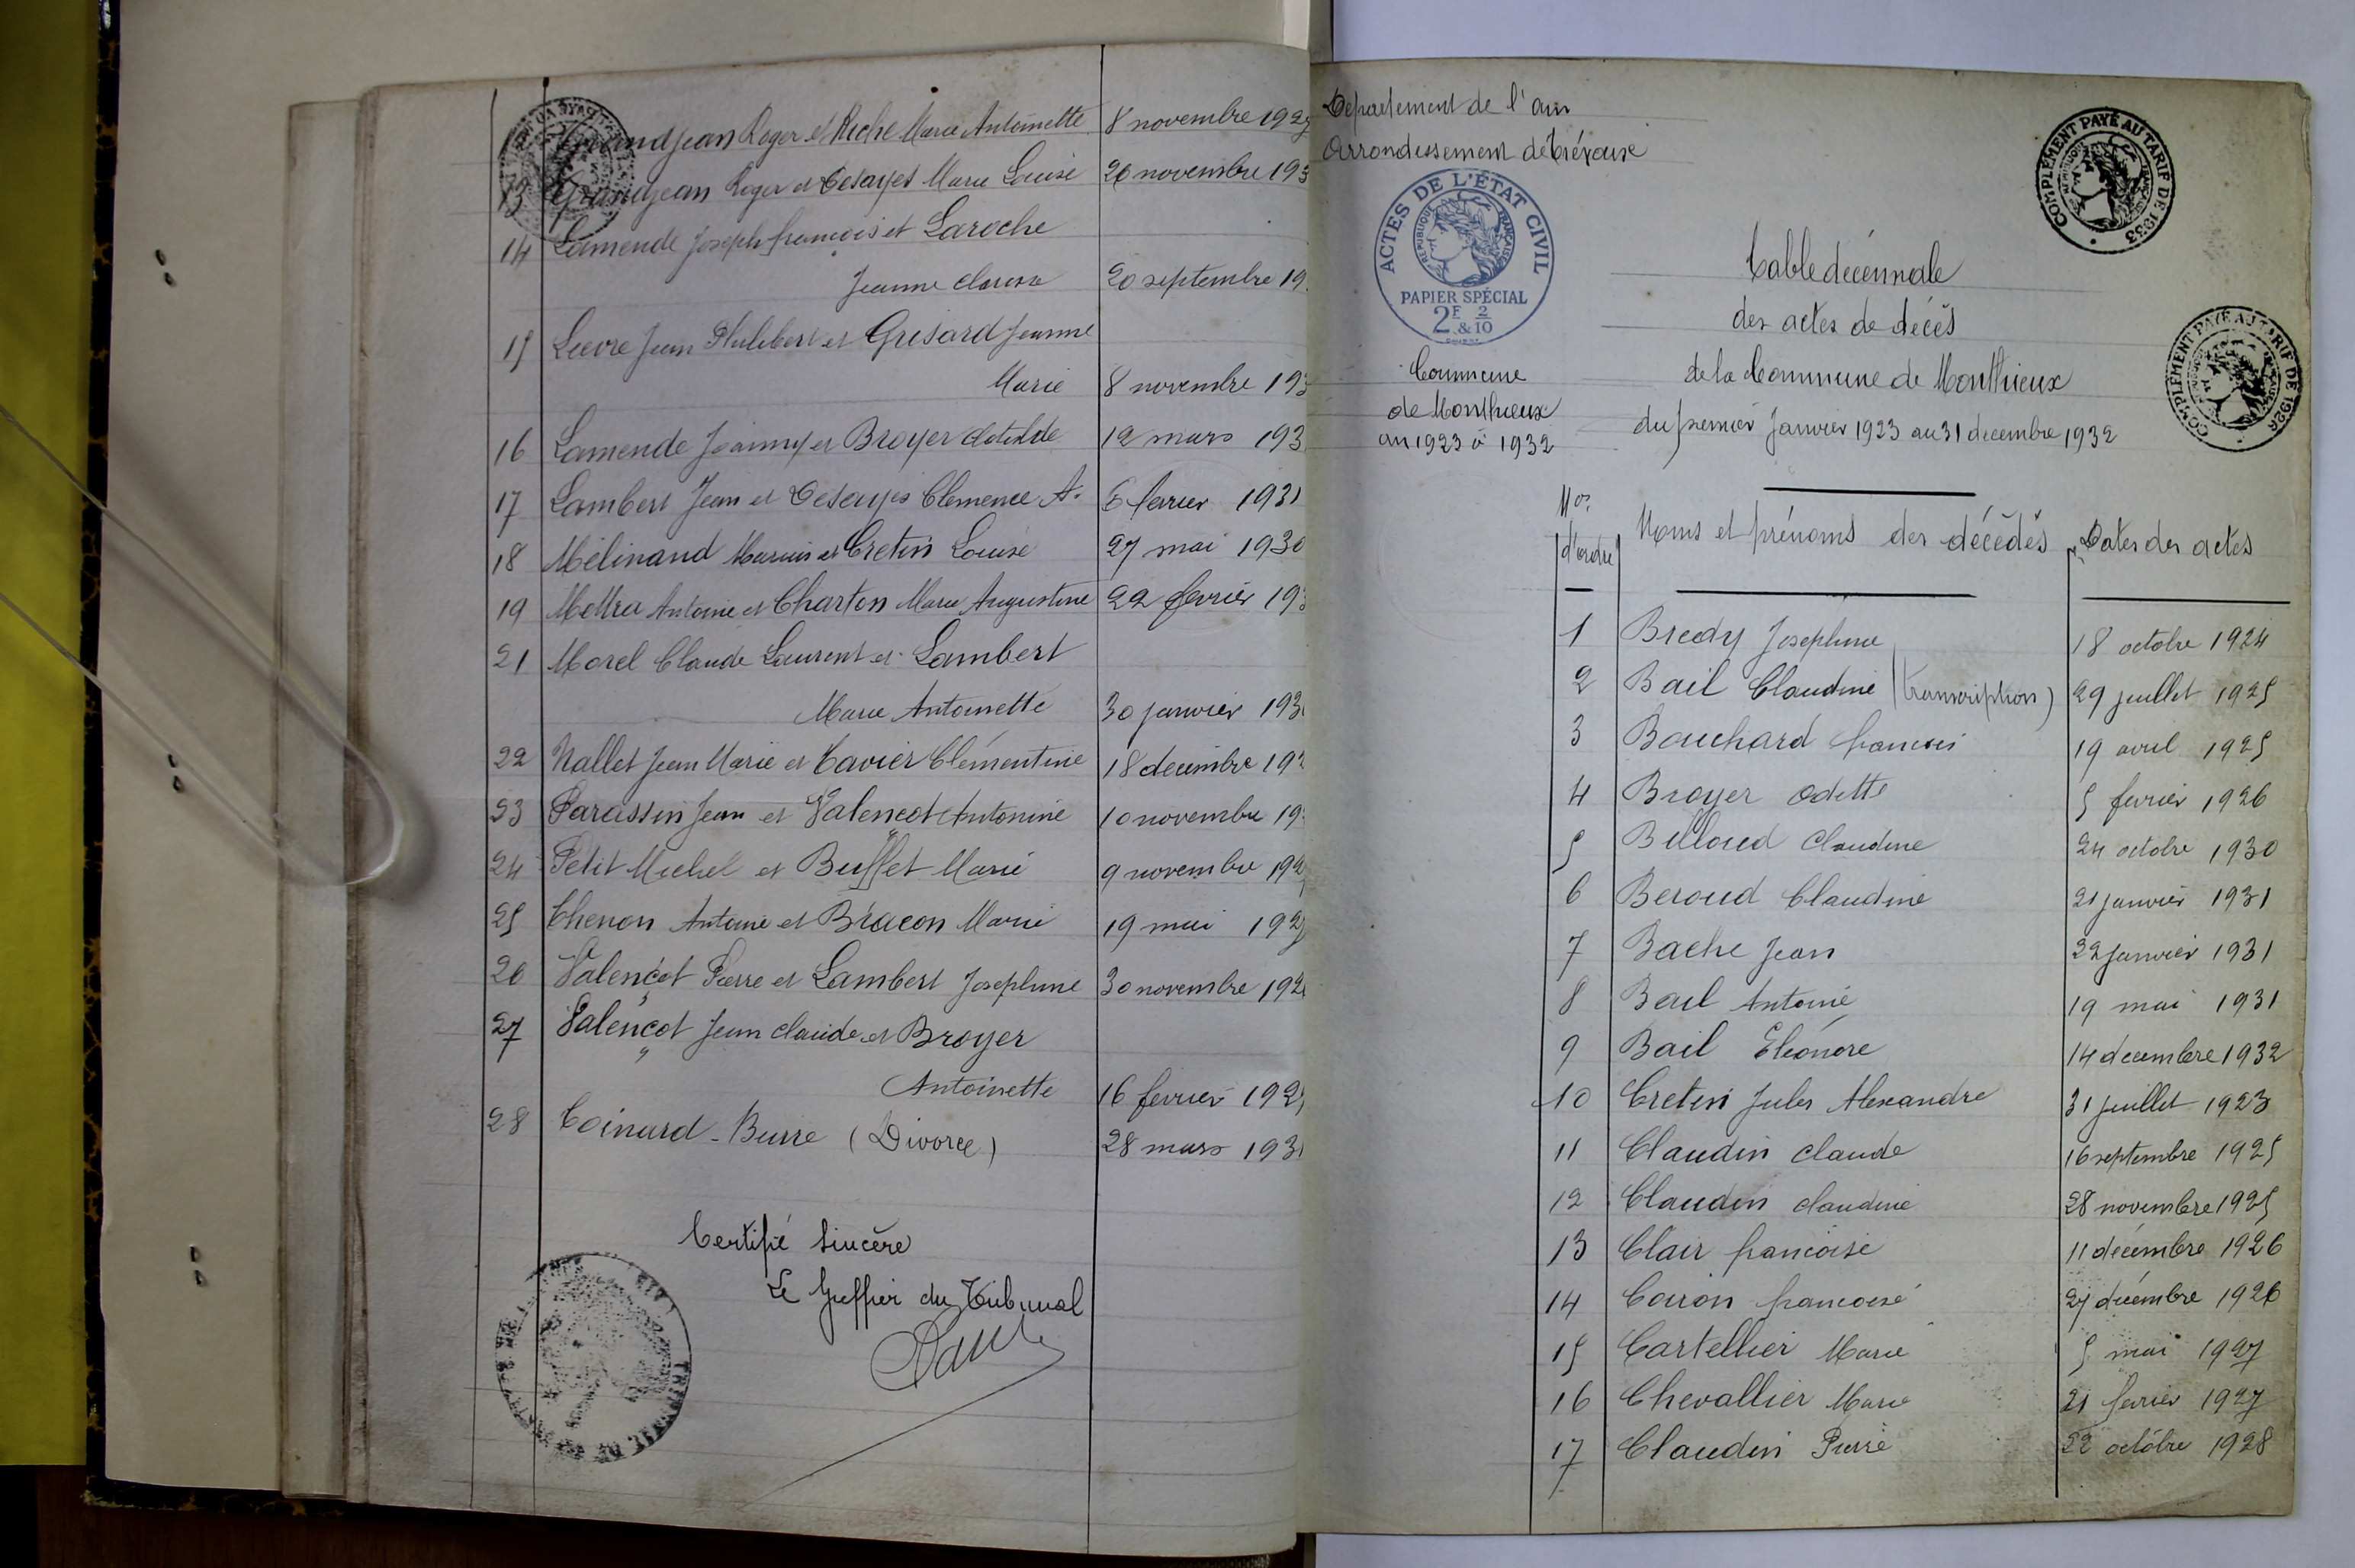 Grandjean Roger et Riche Marie Antoinette 8 novembre 192
13 Grandjean Roger et Desayes Marie Louise 26 novembre 193
14 Lamende Joseph francois et Laroche
Jeanne 20 septembre 19
15 Lievre Jean Philibert et Grisard Jeanne
Marie 8 novembre 193
16 Lamende Joanny et Broyer Clotilde 12 mars 193
17 Lambert Jean et Desayes Clemence A. 6 fevrier 1931
18 Mélinand Marius et Cretin Louise 27 mai 1930
19 Antoine et Charton Marie Augustine 22 fevrier 193
21 Morel Claude Laurent et Lambert
Marie Antoinette 30 janvier 193
22 Nallet Jean Marie et Tavier Clémentine 18 decembre 192
23 Parassin Jean et Valencot Antonine 10 novembre 19
24 Petit Michel et Buffet Marie 9 novembre 192
25 Thenon Antoine et Bracon Marie 19 mai 192
26 Valencot Pierre et Lambert Josephine 30 novembre 192
27 Valencot Jean claude et Broyer
Antoinette 16 fevrier 192
28 Coinard - Burre (Divorce) 28 mars 193
Certifié Sincère
Le Greffier du Tribunal
Département de l'ain
Arrondissement de Trévoux
ACTES DE L'ÉTAT CIVIL
RÉPUBLIQUE FRANÇAISE
PAPIER SPÉCIAL
2F & 2/10
COMPLÉMENT PAYÉ AU TARIF DE 1933
COMPLÉMENT PAYÉ AU TARIF DE 1926
Commune
de Monthieux
an 1923 à 1932
Table décennale
des actes de décès
de la Commune de Monthieux
du premier Janvier 1923 au 31 decembre 1932
Nos d'ordre Noms et prénoms des décédés Dates des actes
1 Bredy Josephine 18 octobre 1924
2 Bail Claudine (transcription) 29 juillet 1925
3 Bouchard francois 19 avril 1925
4 Broyer odette 5 fevrier 1926
5 Billoud Claudine 24 octobre 1930
6 Beroud Claudine 21 janvier 1931
7 Bache Jean 22 janvier 1931
8 Bail Antoine 19 mai 1931
9 Bail Eléonore 14 decembre 1932
10 Cretin Jules Alexandre 31 juillet 1923
11 Claudin claude 16 septembre 1925
12 Claudin claudine 28 novembre 1925
13 Clair francoise 11 décembre 1926
14 Coiron francoise 27 décembre 1926
15 Cartellier Marie 5 mai 1927
16 Chevallier Marie 21 fevrier 1927
17 Claudin Pierre 22 octobre 1928